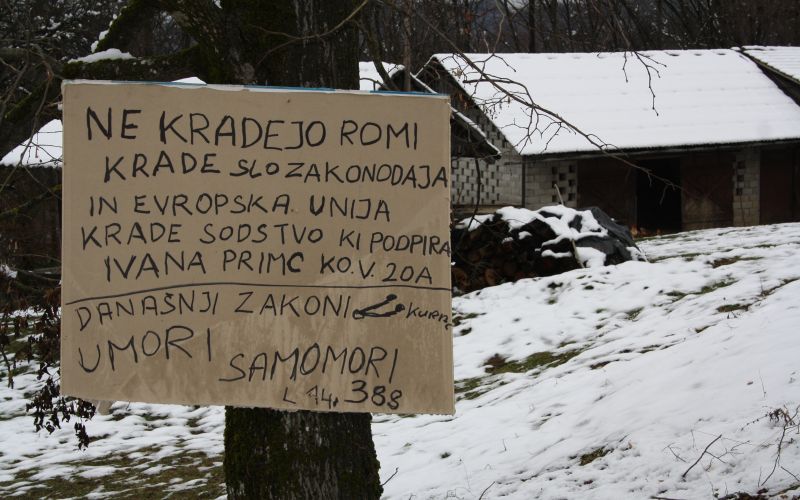 NE KRADEJO ROMI
KRADE SLO ZAKONODAJA
IN EVROPSKA UNIJA
KRADE SODSTVO KI PODPIRA
IVANA PRIMC KO.V. 20A
DANAŠNJI ZAKONI
UMORI SAMOMORI
L 14. 388